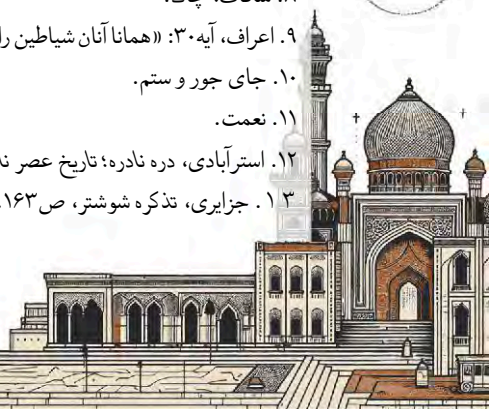 ۹. اعراف، آیه۳۰: «همانا آنان شیاطین را
۱۰. جای جور و ستم.
۱۱. نعمت.
۱۲. استرآبادی، دره نادره؛ تاریخ عصر
۱۳. جزایری، تذکره شوشتر، ص۱۶۳.